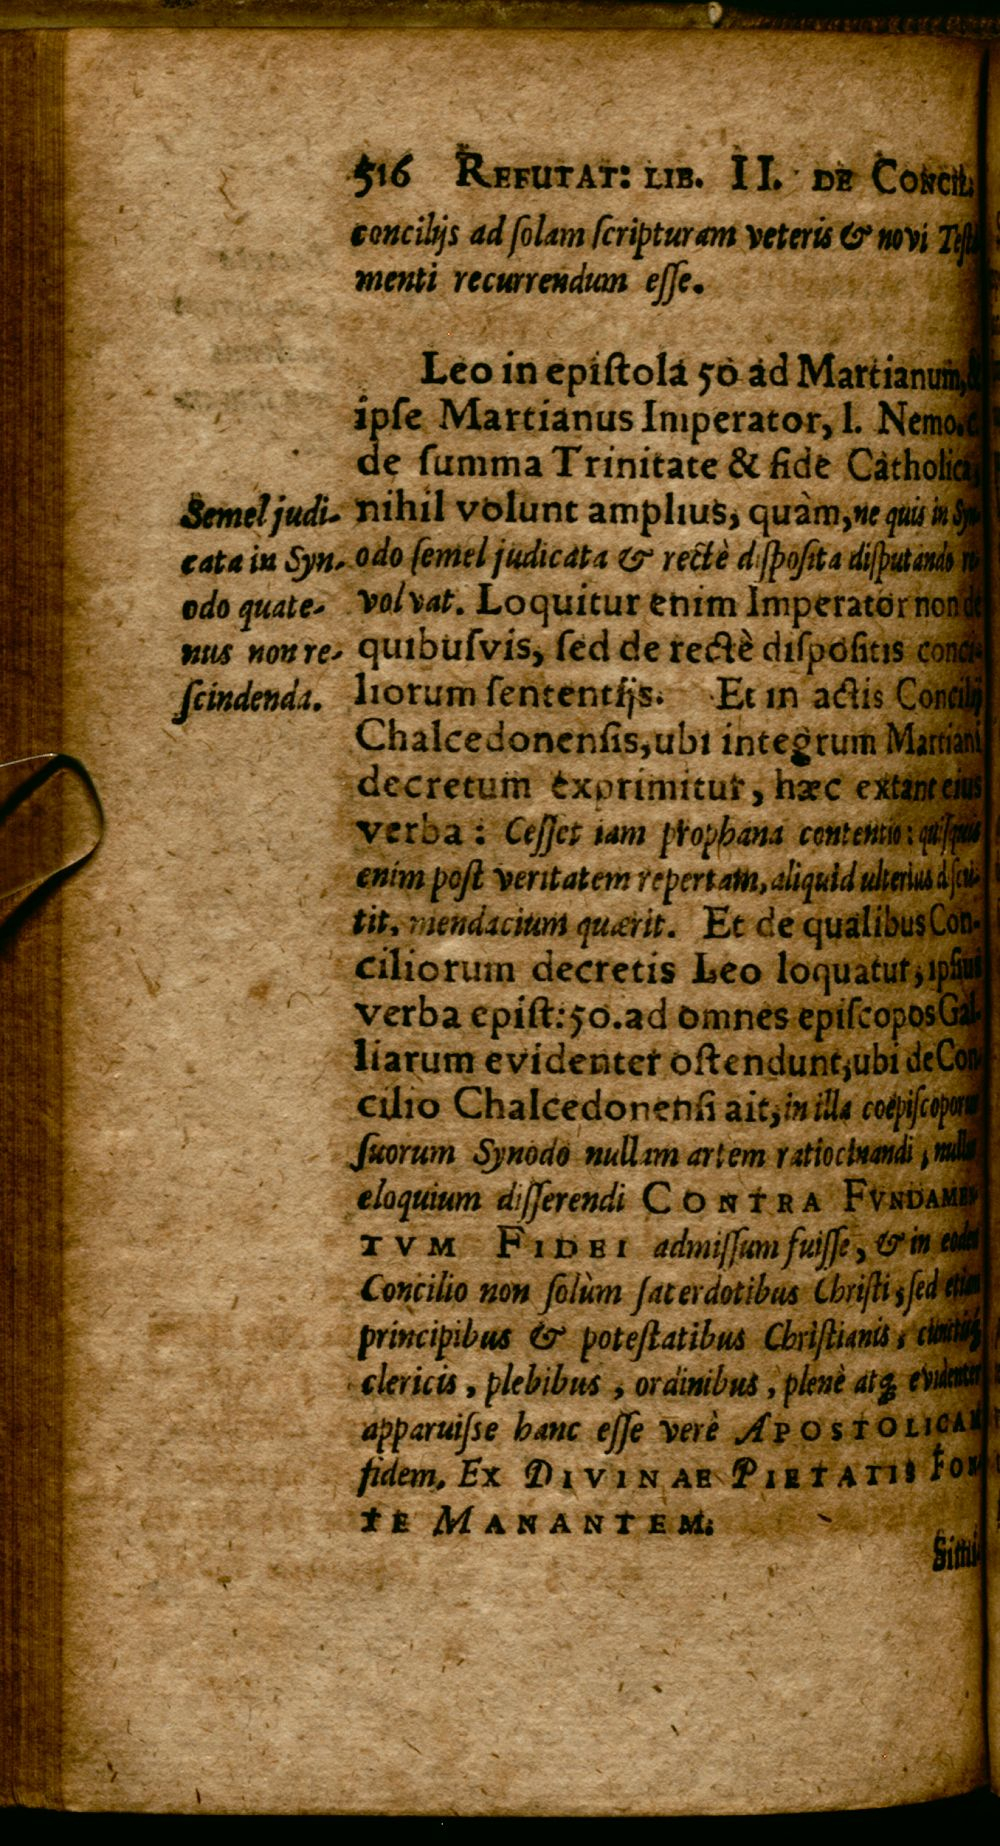 516 REFUTAT: LIB. II. DE CONCIL.
concilijs ad ſolam ſcripturam veteris & novi Teſta
menti recurrendum eſſe.
Leo in epiſtola 50 ad Martianum, &
ipſe Martianus Imperator, l. Nemo. C
de ſumma Trinitate & fide Catholica,
nihil volunt amplius, quàm, ne quis in Syn-
odo ſemel judicata & rectè diſpoſita diſputando re
volvat. Loquitur enim Imperator non de
quibuſvis, ſed de rectè diſpoſitis conci-
liorum ſententijs. Et in actis Concilij
Chalcedonenſis, ubi integrum Martiani
decretum exprimitur, hæc extant eius
verba: Ceſſet iam prophana contentio: quiſquis
enim poſt veritatem repertam, aliquid ulterius diſcu-
tit, mendacium quærit. Et de qualibus Con-
ciliorum decretis Leo loquatur, ipſius
verba epiſt: 50. ad omnes epiſcopos Gal-
liarum evidenter oſtendunt, ubi de Con-
cilio Chalcedonenſi ait, in illa coepiſcoporum
ſuorum Synodo nullam artem ratiocinandi, nullum
eloquium diſſerendi CONTRA FVNDAMEN-
TVM FIDEI admiſſum fuiſſe, & in eodem
Concilio non ſolùm ſacerdotibus Chriſti, ſed etiam
principibus & poteſtatibus Chriſtianis, cunctiſq́;
clericis, plebibus, ordinibus, plenè atq; evidenter
apparuiſse hanc eſſe verè APOSTOLICAM
fidem, EX DIVINAE PIETATIS FON-
TE MANANTEM.
Simi-
Semel judi-
cata in Syn-
odo quate-
nus non re-
ſcindenda.